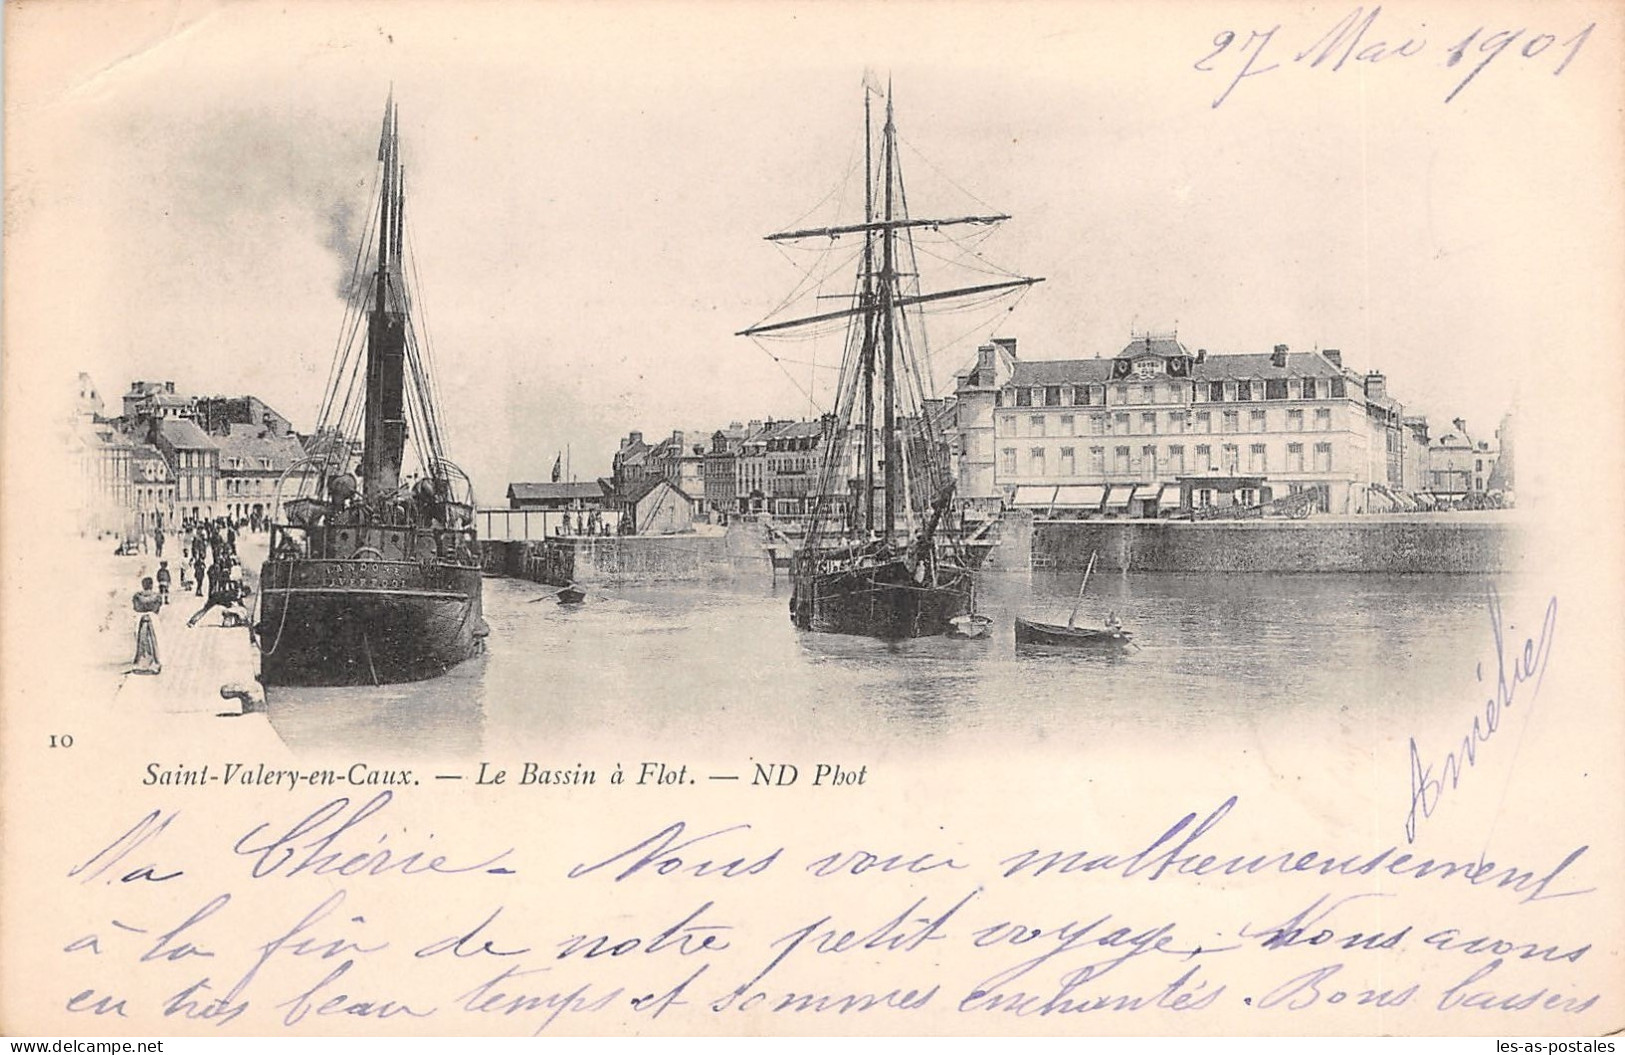 27 Mai 1901
LANDORE
LIVERPOOL
10
Saint-Valery-en-Caux. — Le Bassin à Flot. — ND Phot
Amélie
Ma Chérie - Nous voici malheureusement
à la fin de notre petit voyage. Nous avons
eu très beau temps et sommes enchantés. Bons baisers
delcampe.net
les-as-postales